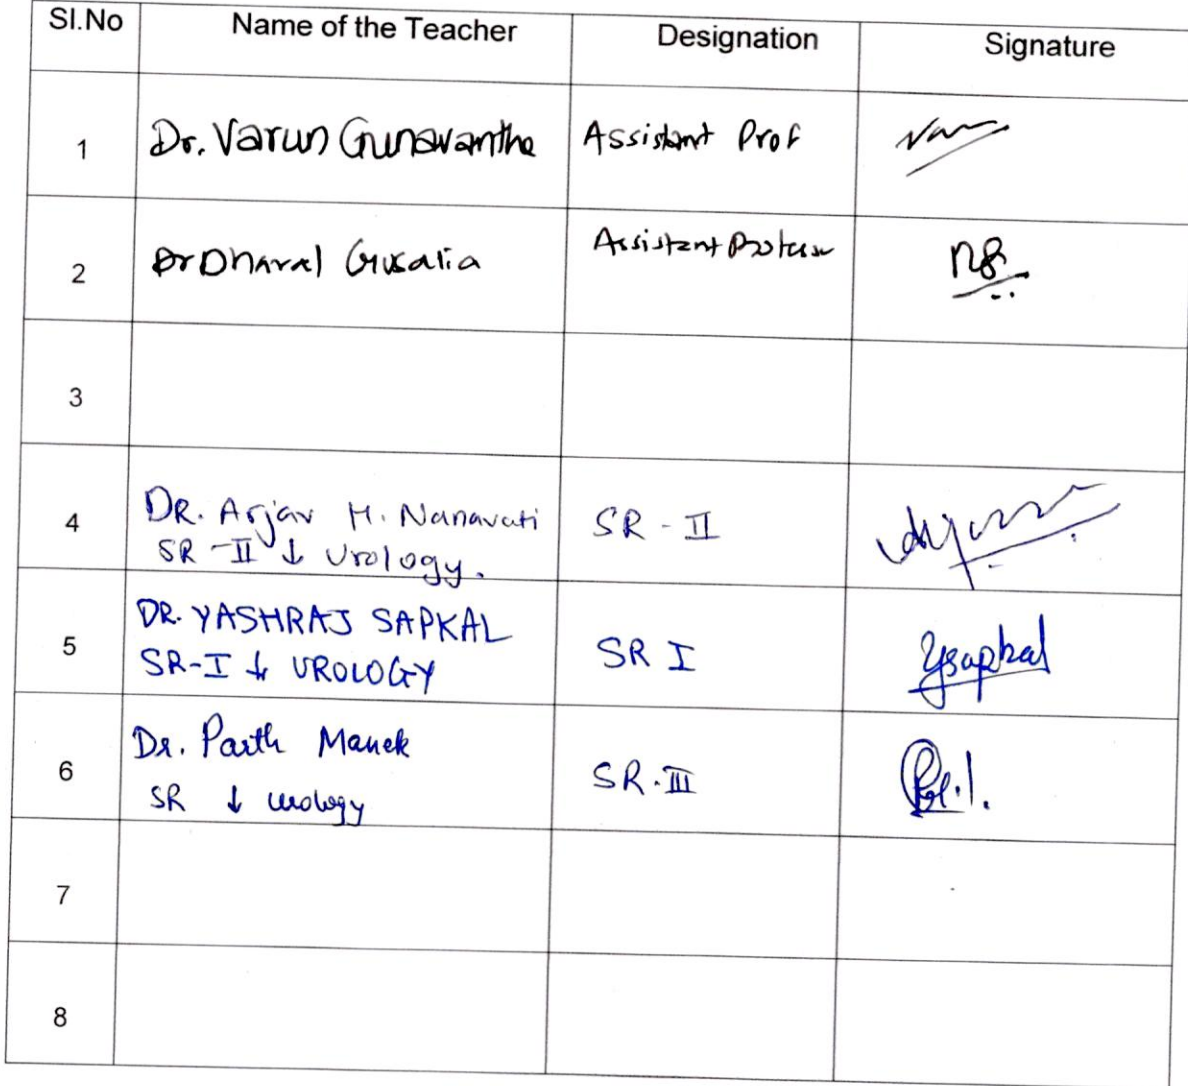 Sl.No Name of the Teacher Designation Signature
1 Dr. Varun Gunavanthe Assistant Prof
2 Dr Dhaval Gusalia Assistant Professor
3
4 DR. Arjav H. Nanavati SR - II
SR - II ↓ Urology.
5 DR. YASHRAJ SAPKAL SR I Ysapkal
SR-I ↓ UROLOGY
6 Dr. Parth Manek SR.III
SR ↓ urology
7
8